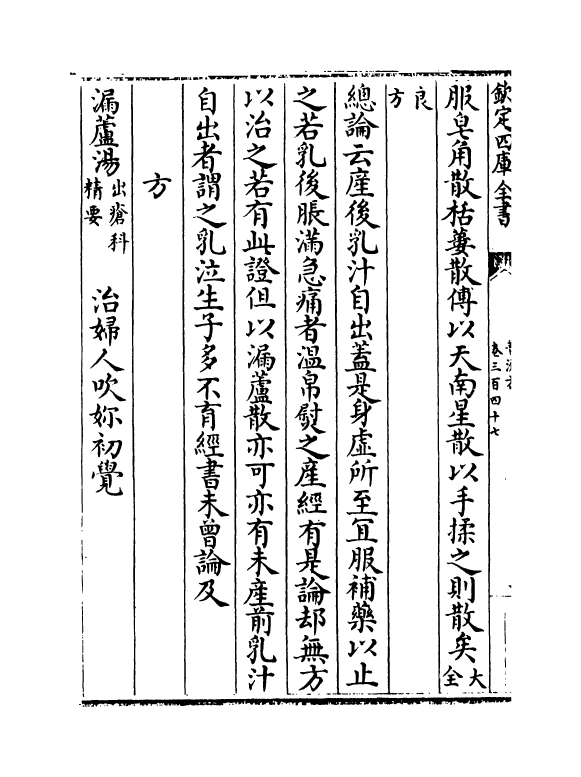 欽定四庫全書
卷三百四十七
服皂角散栝蔞散傅以天南星散以手揉之則散矣大全
良方
總論云産後乳汁自出蓋是身虚所至冝服補藥以止
之若乳後脹滿急痛者温帛熨之産經有是論却無方
以治之若有此證但以漏蘆散亦可亦有未産前乳汁
自出者謂之乳泣生子多不育經書未曾論及
方
漏蘆湯出瘡科精要　治婦人吹妳初覺